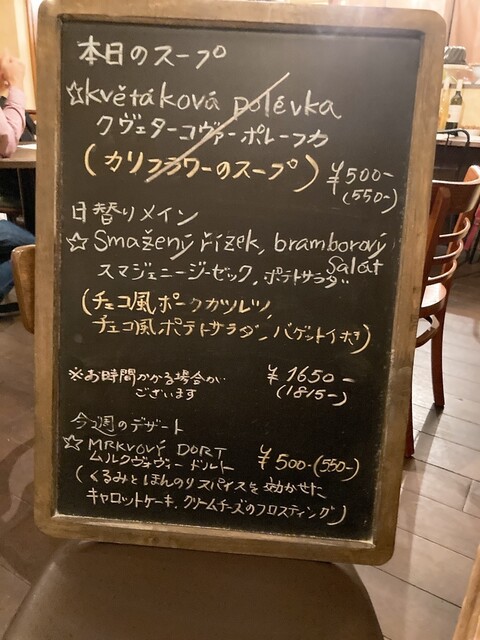 本日のスープ
☆květáková polévka
クヴェターコヴァー ポレーフカ
(カリフラワーのスープ) ¥500-
(550-)
日替りメイン
☆Smažený řízek, bramborový
salát
スマジェニージーゼック, ポテトサラダ
(チェコ風ポークカツレツ,
チェコ風ポテトサラダ, バゲット付き)
※お時間かかる場合が ¥1650-
ございます (1815-)
今週のデザート
☆MRKVOVÝ DORT ¥500-(550-)
ムルクヴォヴィー ドルト
(くるみとほんのりスパイスを効かせた
キャロットケーキ. クリームチーズのフロスティング)